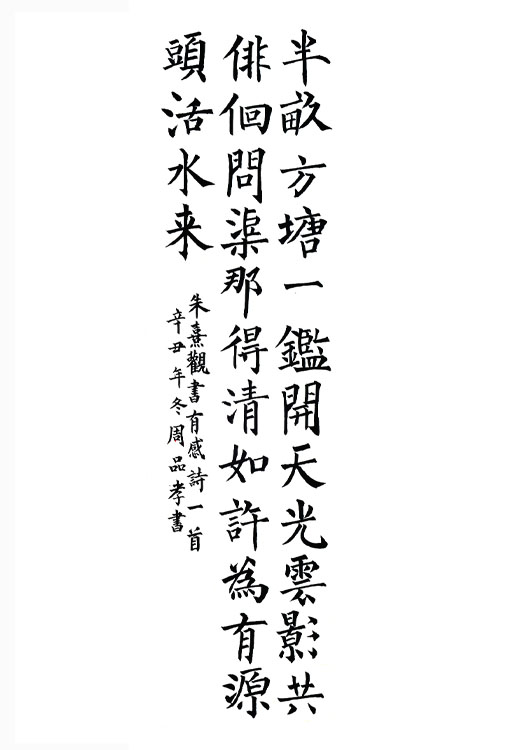 半畝方塘一鑑開天光雲影共
俳佪問渠那得清如許為有源
頭活水来
朱熹觀書有感詩一首
辛丑年冬周品孝書